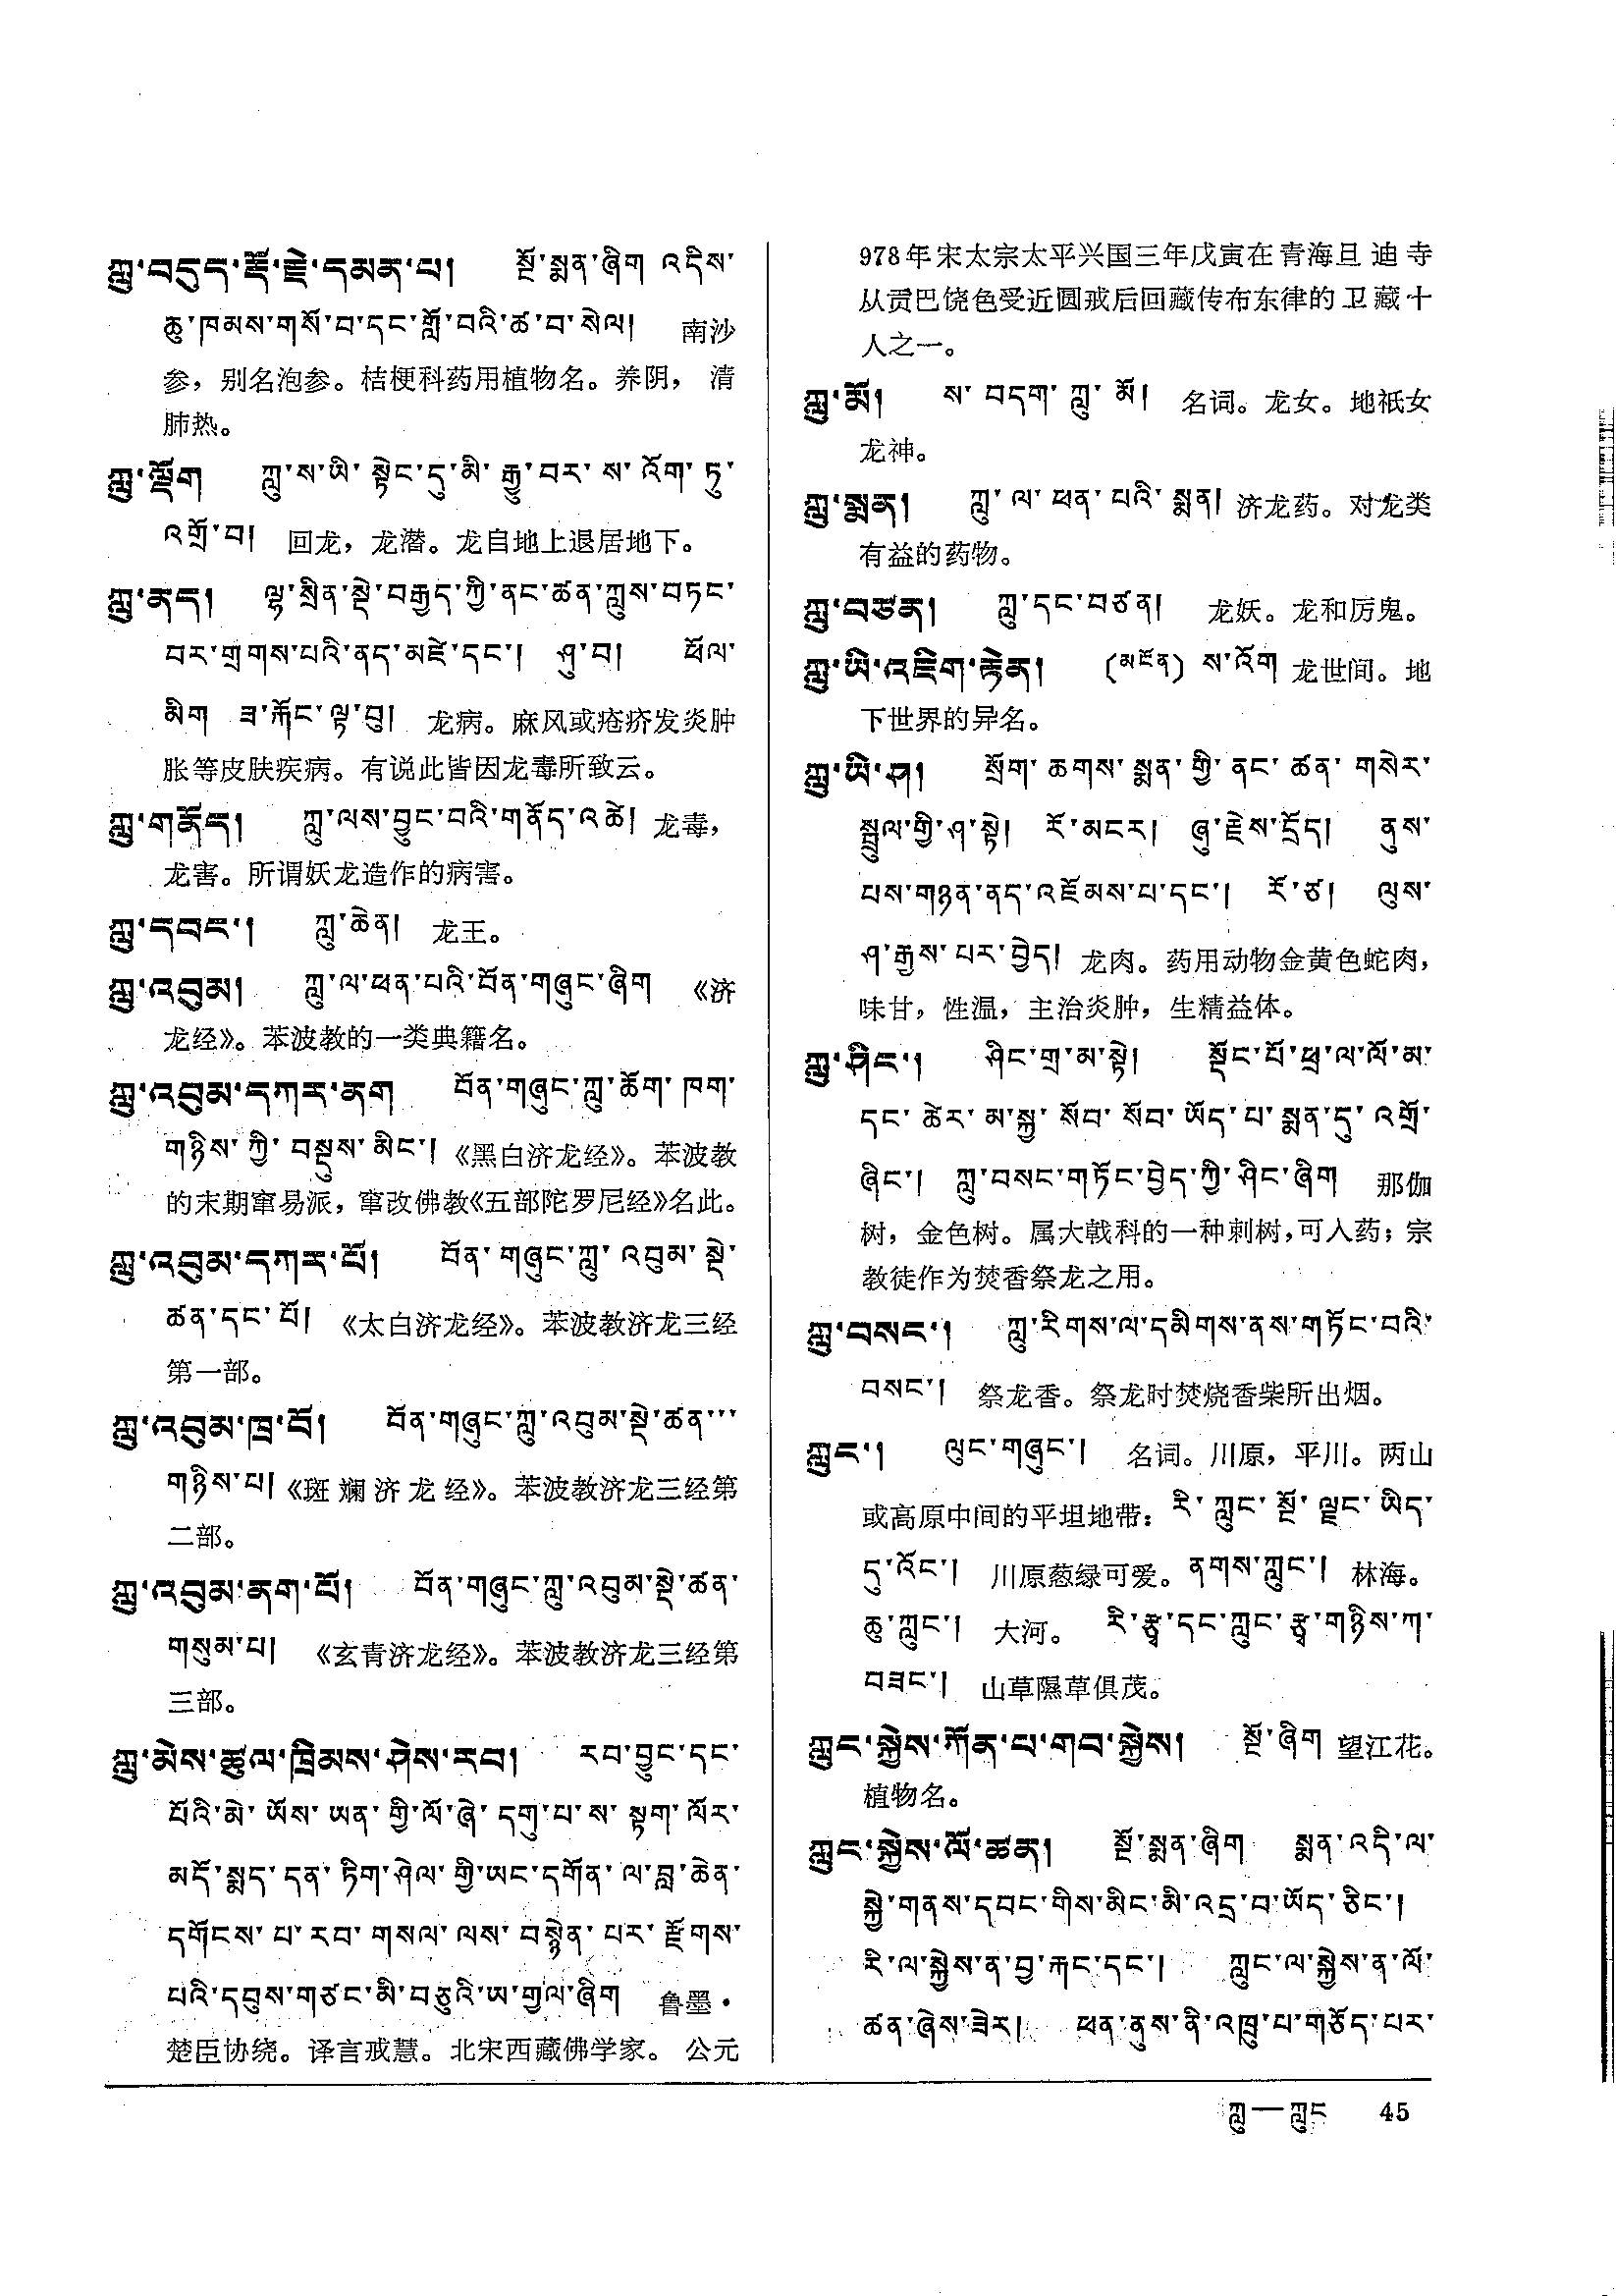 ཀླུ་བདུད་རྡོ་རྗེ་དམན་པ།	སྔོ་སྨན་ཞིག འདིས་
ཆུ་ཁམས་གསོ་བ་དང་གློ་བའི་ཚ་བ་སེལ། 南沙
参，别名泡参。桔梗科药用植物名。养阴，清
肺热。
ཀླུ་ལྡོག ཀླུ་ས་ཡི་སྟེང་དུ་མི་རྒྱུ་བར་ས་འོག་ཏུ་
འགྲོ་བ། 回龙，龙潜。龙自地上退居地下。
ཀླུ་ནད། ལྷ་སྲིན་སྡེ་བརྒྱད་ཀྱི་ནང་ཚན་ཀླུས་བཏང་
བར་གྲགས་པའི་ནད་མཛེ་དང་། ཤུ་བ། ཕོལ་
མིག ཟ་རྐོང་ལྟ་བུ། 龙病。麻风或疮疥发炎肿
胀等皮肤疾病。有说此皆因龙毒所致云。
ཀླུ་གནོད། ཀླུ་ལས་བྱུང་བའི་གནོད་འཚེ། 龙毒，
龙害。所谓妖龙造作的病害。
ཀླུ་དབང་། ཀླུ་ཆེན། 龙王。
ཀླུ་འབུམ། ཀླུ་ལ་ཕན་པའི་བོན་གཞུང་ཞིག 《济
龙经》。苯波教的一类典籍名。
ཀླུ་འབུམ་དཀར་ནག བོན་གཞུང་ཀླུ་ཆོག་ཁག་
གཉིས་ཀྱི་བསྡུས་མིང་། 《黑白济龙经》。苯波教
的末期窜易派，窜改佛教《五部陀罗尼经》名此。
ཀླུ་འབུམ་དཀར་པོ། བོན་གཞུང་ཀླུ་འབུམ་སྡེ་
ཚན་དང་པོ། 《太白济龙经》。苯波教济龙三经
第一部。
ཀླུ་འབུམ་ཁྲ་བོ། བོན་གཞུང་ཀླུ་འབུམ་སྡེ་ཚན་་་
གཉིས་པ། 《斑斓济龙经》。苯波教济龙三经第
二部。
ཀླུ་འབུམ་ནག་པོ། བོན་གཞུང་ཀླུ་འབུམ་སྡེ་ཚན་
གསུམ་པ། 《玄青济龙经》。苯波教济龙三经第
三部。
ཀླུ་མེས་ཚུལ་ཁྲིམས་ཤེས་རབ། རབ་བྱུང་དང་
པོའི་མེ་ཡོས་ཡན་གྱི་ལོ་ཞེ་དགུ་པ་ས་སྟག་ལོར་
མདོ་སྨད་དན་ཏིག་ཤེལ་གྱི་ཡང་དགོན་ལ་བླ་ཆེན་
དགོངས་པ་རབ་གསལ་ལས་བསྙེན་པར་རྫོགས་
པའི་དབུས་གཙང་མི་བཅུའི་ཡ་གྱལ་ཞིག 鲁墨·
楚臣协绕。译言戒慧。北宋西藏佛学家。公元
978年宋太宗太平兴国三年戊寅在青海旦迪寺
从贡巴饶色受近圆戒后回藏传布东律的卫藏十
人之一。
ཀླུ་མོ། ས་བདག་ཀླུ་མོ། 名词。龙女。地祇女
龙神。
ཀླུ་སྨན། ཀླུ་ལ་ཕན་པའི་སྨན། 济龙药。对龙类
有益的药物。
ཀླུ་བཙན། ཀླུ་དང་བཙན། 龙妖。龙和厉鬼。
ཀླུ་ཡི་འཇིག་རྟེན། (མངོན) ས་འོག 龙世间。地
下世界的异名。
ཀླུ་ཡི་ཤ། སྲོག་ཆགས་སྨན་གྱི་ནང་ཚན་གསེར་
སྦྲུལ་གྱི་ཤ་སྟེ། རོ་མངར། ཞུ་རྗེས་དྲོད། ནུས་
པས་གཉན་ནད་འཇོམས་པ་དང་། རོ་ཙ། ལུས་
ཤ་རྒྱས་པར་བྱེད། 龙肉。药用动物金黄色蛇肉，
味甘，性温，主治炎肿，生精益体。
ཀླུ་ཤིང་། ཤིང་གྲ་མ་སྟེ། སྡོང་པོ་ཕྲ་ལ་ལོ་མ་
དང་ཚེར་མ་སྐྱ་སོབ་སོབ་ཡོད་པ་སྨན་དུ་འགྲོ་
ཞིང་། ཀླུ་བསང་གཏོང་བྱེད་ཀྱི་ཤིང་ཞིག 那伽
树，金色树。属大戟科的一种刺树，可入药；宗
教徒作为焚香祭龙之用。
ཀླུ་བསང་། ཀླུ་རིགས་ལ་དམིགས་ནས་གཏོང་བའི་
བསང་། 祭龙香。祭龙时焚烧香柴所出烟。
ཀླུང་། ལུང་གཞུང་། 名词。川原，平川。两山
或高原中间的平坦地带：རི་ཀླུང་སྔོ་ལྗང་ཡིད་
དུ་འོང་། 川原葱绿可爱。ནགས་ཀླུང་། 林海。
ཆུ་ཀླུང་། 大河。 རི་རྩྭ་དང་ཀླུང་རྩྭ་གཉིས་ཀ་
བཟང་། 山草隰草俱茂。
ཀླུང་སྐྱེས་ཀོན་པ་གབ་སྐྱེས། སྔོ་ཞིག 望江花。
植物名。
ཀླུང་སྐྱེས་ལོ་ཚན། སྔོ་སྨན་ཞིག སྨན་འདི་ལ་
སྐྱེ་གནས་དབང་གིས་མིང་མི་འདྲ་བ་ཡོད་ཅིང་།
རི་ལ་སྐྱེས་ན་བྱ་རྐང་དང་། ཀླུང་ལ་སྐྱེས་ན་ལོ་
ཚན་ཞེས་ཟེར། ཕན་ནུས་ནི་འཁྲུ་པ་གཅོད་པར་
ཀླུ—ཀླུང 45